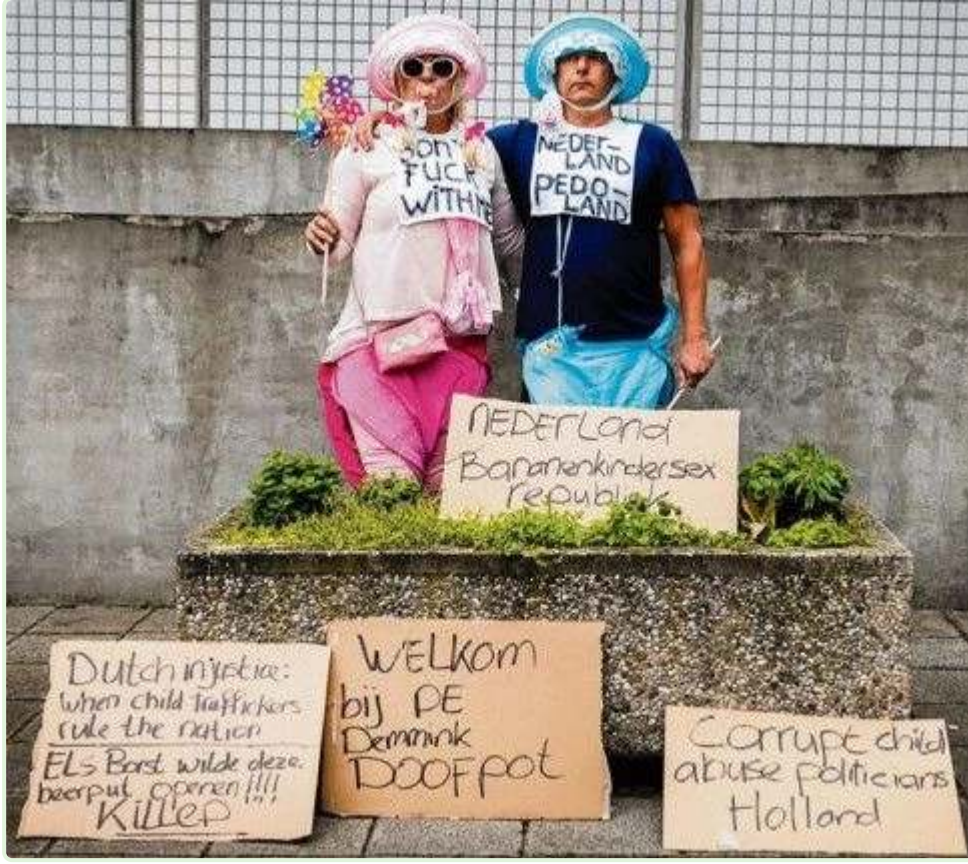 DON'T
FUCK
WITH ME
NEDER-
LAND
PEDO-
LAND
NEDERLAND
Bananenkindersex
republiek
Dutch injustice:
when child traffickers
rule the nation
ELs Borst wilde deze
beerput openen!!!!
KILLED
WELKOM
bij DE
Demmink
DOOFPOT
Corrupt child
abuse politicians
Holland